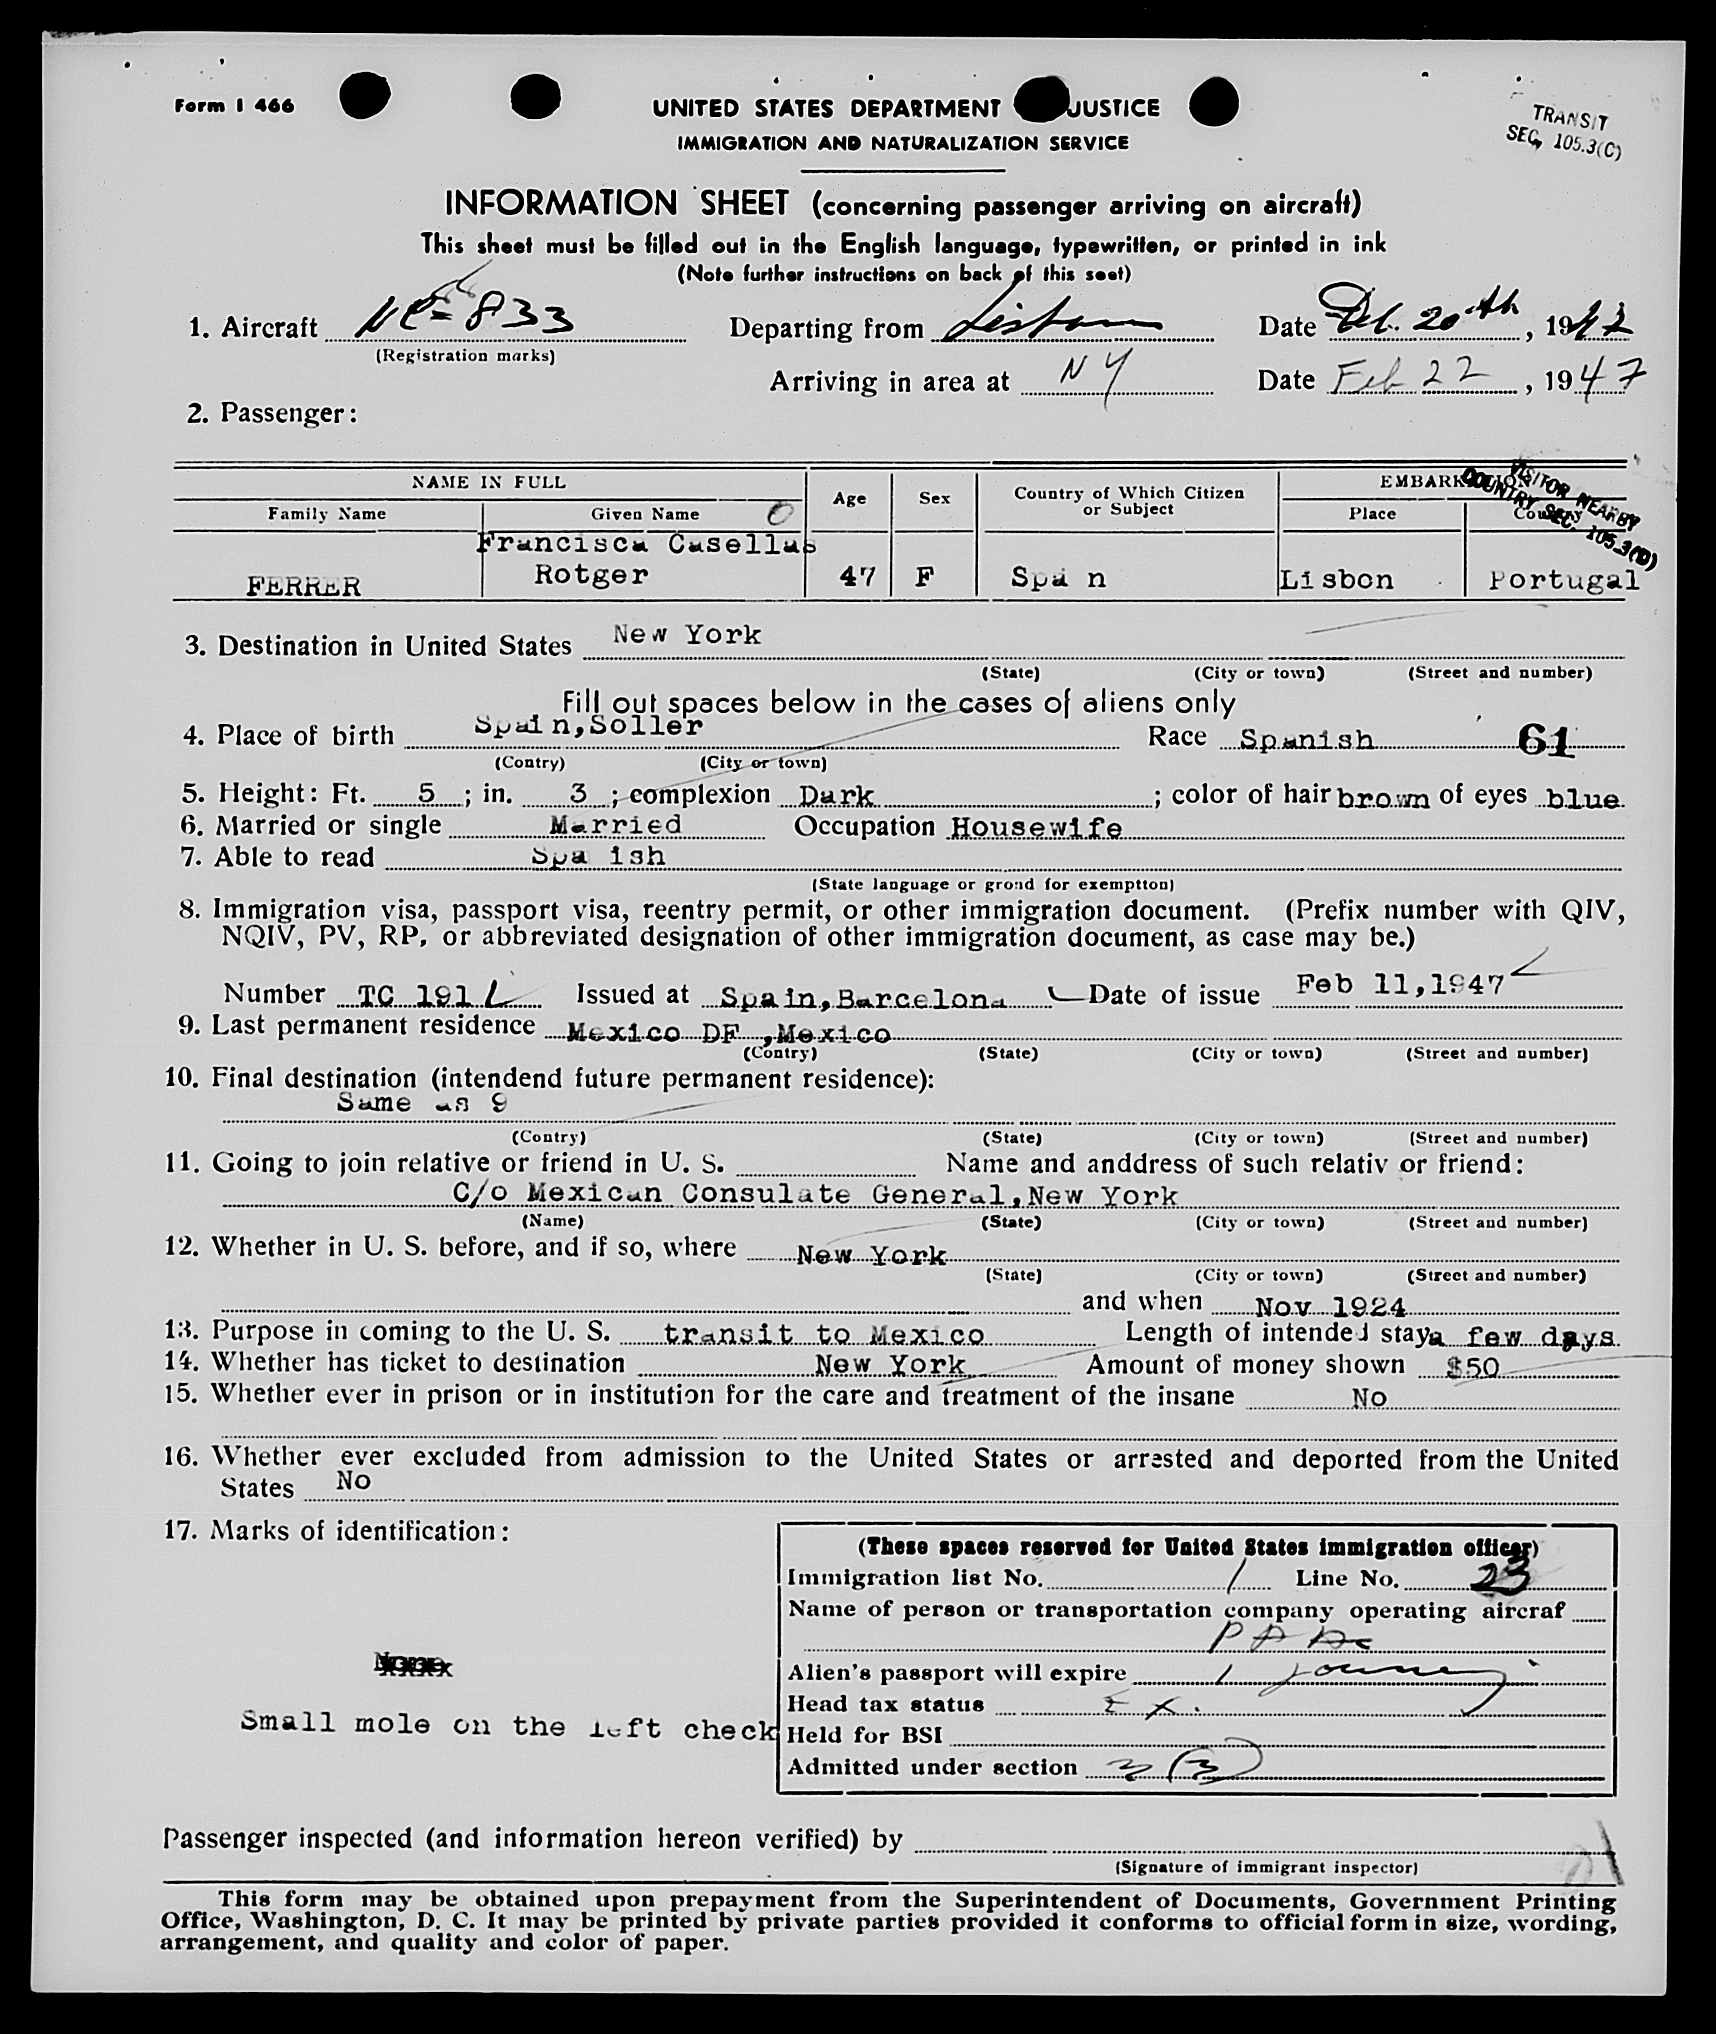 Form I 466
UNITED STATES DEPARTMENT JUSTICE
IMMIGRATION AND NATURALIZATION SERVICE
TRANSIT
SEC, 105.3(C)
INFORMATION SHEET (concerning passenger arriving on aircraft)
This sheet must be filled out in the English language, typewritten, or printed in ink
(Note further instructions on back of this seet)
1. Aircraft NC= 833 Departing from Lisbon Date 20th, 19
(Registration marks)
Arriving in area at NY Date Feb 22, 1947
2. Passenger:
NAME IN FULL Age Sex Country of Which Citizen or Subject EMBARK
VISITOR NEARBY
COUNTRY SEC. 105.3(D)
Family Name Given Name Place Country
Francisca Casellas
FERRER Rotger 47 F Spa n Lisbon Portugal
3. Destination in United States New York
(State) (City or town) (Street and number)
Fill out spaces below in the cases of aliens only
4. Place of birth Spain,Soller Race Spanish 61
(Contry) (City or town)
5. Height: Ft. 5 ; in. 3 ; complexion Dark ; color of hair brown of eyes blue
6. Married or single Married Occupation Housewife
7. Able to read Spa ish
(State language or grond for exemptton)
8. Immigration visa, passport visa, reentry permit, or other immigration document. (Prefix number with QIV,
NQIV, PV, RP, or abbreviated designation of other immigration document, as case may be.)
Number TC 191 Issued at Spain,Barcelona Date of issue Feb 11,1947
9. Last permanent residence Mexico DF ,Mexico
(Contry) (State) (City or town) (Street and number)
10. Final destination (intendend future permanent residence):
Same as 9
(Contry) (State) (City or town) (Street and number)
11. Going to join relative or friend in U. S. Name and anddress of such relativ or friend:
C/o Mexican Consulate General,New York
(Name) (State) (City or town) (Street and number)
12. Whether in U. S. before, and if so, where New York
(State) (City or town) (Street and number)
and when Nov 1924
13. Purpose in coming to the U. S. transit to Mexico Length of intended stay a few days
14. Whether has ticket to destination New York Amount of money shown $50
15. Whether ever in prison or in institution for the care and treatment of the insane No
16. Whether ever excluded from admission to the United States or arrested and deported from the United
States No
17. Marks of identification:
Small mole on the left check
(These spaces reserved for United States immigration officer)
Immigration list No. 1 Line No. 23
Name of person or transportation company operating aircraf
PAA
Alien's passport will expire 1 journey
Head tax status Ex.
Held for BSI
Admitted under section 3 (3)
Passenger inspected (and information hereon verified) by
(Signature of immigrant inspector)
This form may be obtained upon prepayment from the Superintendent of Documents, Government Printing
Office, Washington, D. C. It may be printed by private parties provided it conforms to official form in size, wording,
arrangement, and quality and color of paper.